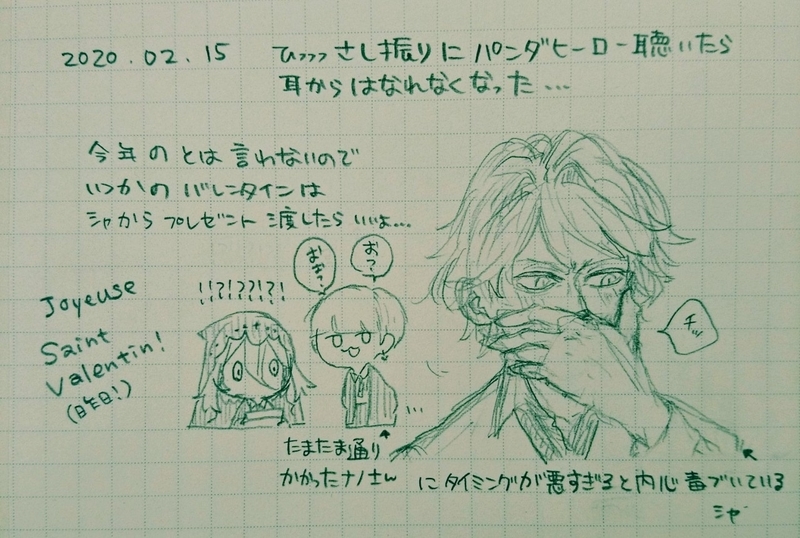 2020.02.15
ひっっっさし振りに パンダヒーロー聴いたら
耳からはなれなくなった…
今年のとは言わないので
いつかのバレンタインは
シャからプレゼント渡したらいいよ…
Joyeuse
Saint
Valentin!
(昨日!)
!!?!??!?!
おぉ?
おっ?
チッ
…
たまたま通り
かかったナノさんw
にタイミングが悪すぎると内心毒づいている
シャ